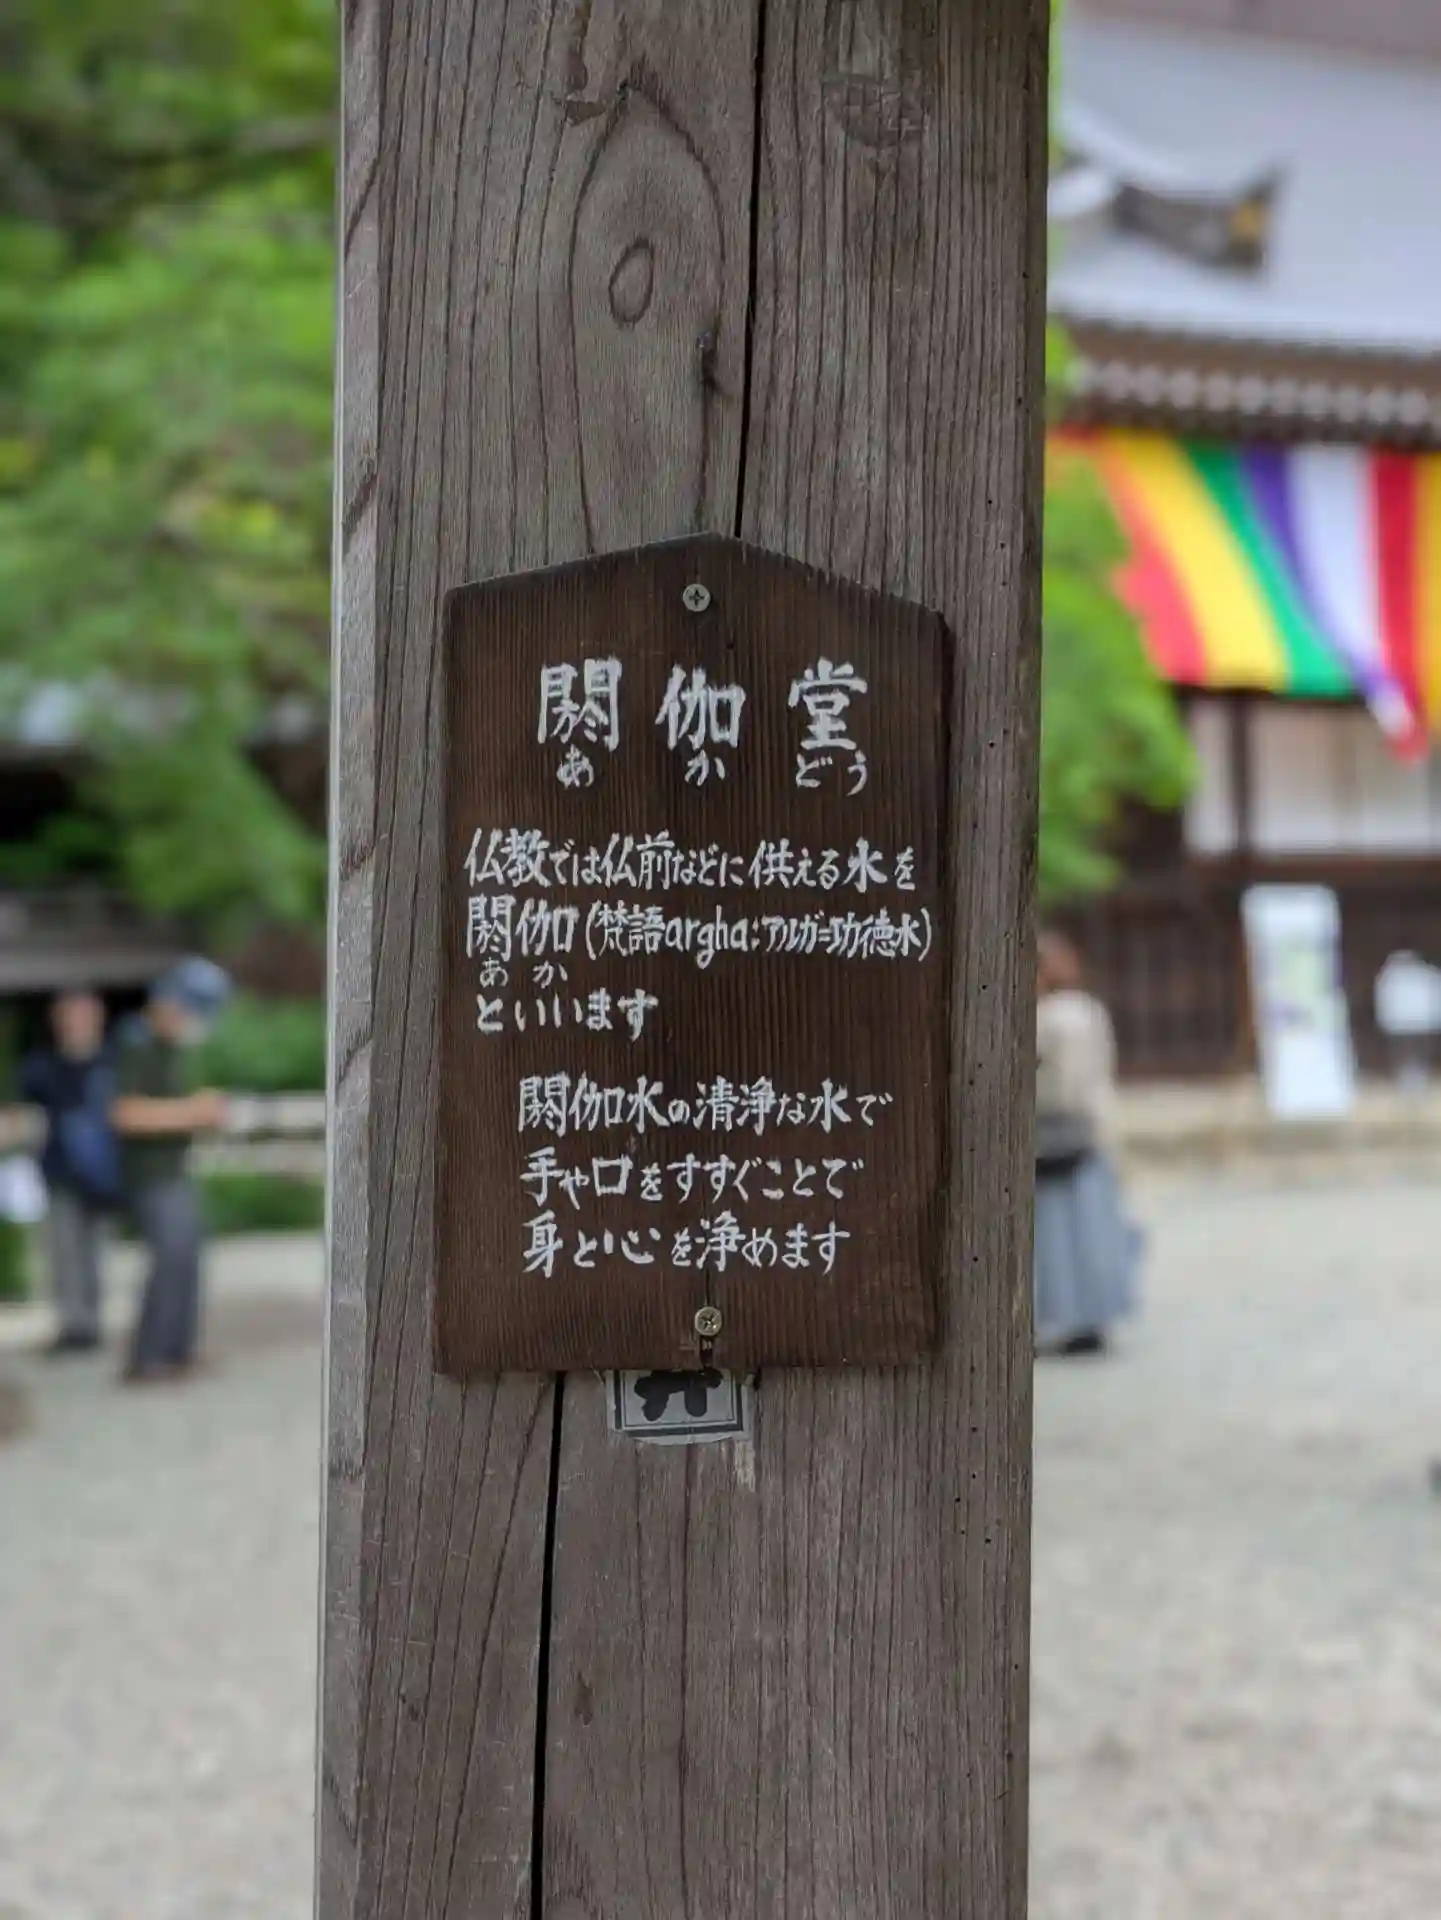 閼伽堂
あかどう
仏教では仏前などに供える水を
閼伽(梵語argha:アルガ=功徳水)
あか
といいます
閼伽水の清浄な水で
手や口をすすぐことで
身と心を浄めます